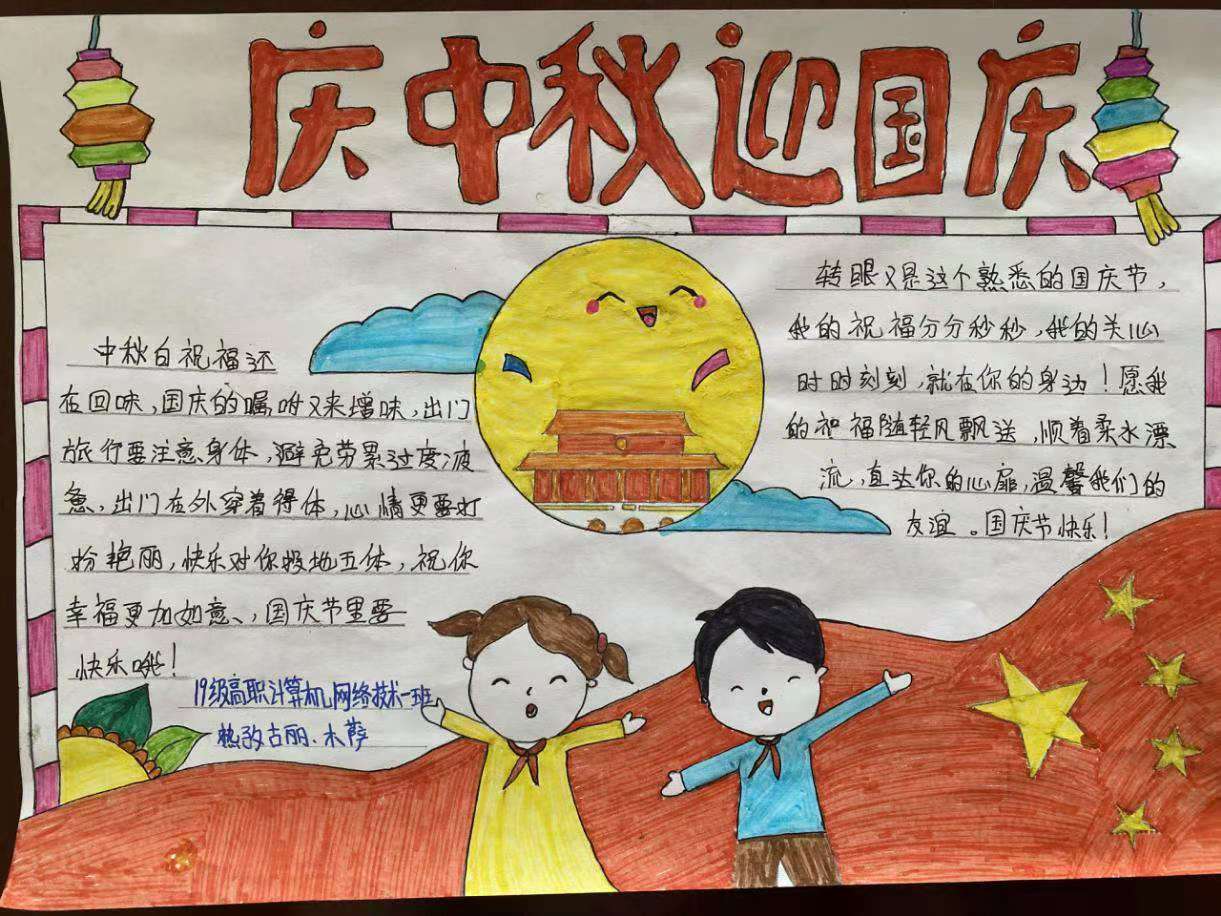 庆中秋迎国庆
中秋白祝福还
在回味,国庆的嘱咐又来增味,出门
旅行要注意身体,避免劳累过度疲
惫,出门在外穿着得体,心情更要打
扮艳丽,快乐对你投地五体,祝你
幸福更加如意、,国庆节里要
快乐哦!
19级高职计算机网络技术一班
热孜古丽.木萨
转眼又是这个熟悉的国庆节,
我的祝福分分秒秒,我的关心
时时刻刻,就在你的身边!愿我
的祝福随轻风飘送,顺着柔水漂
流,直达你的心扉,温馨我们的
友谊。国庆节快乐!